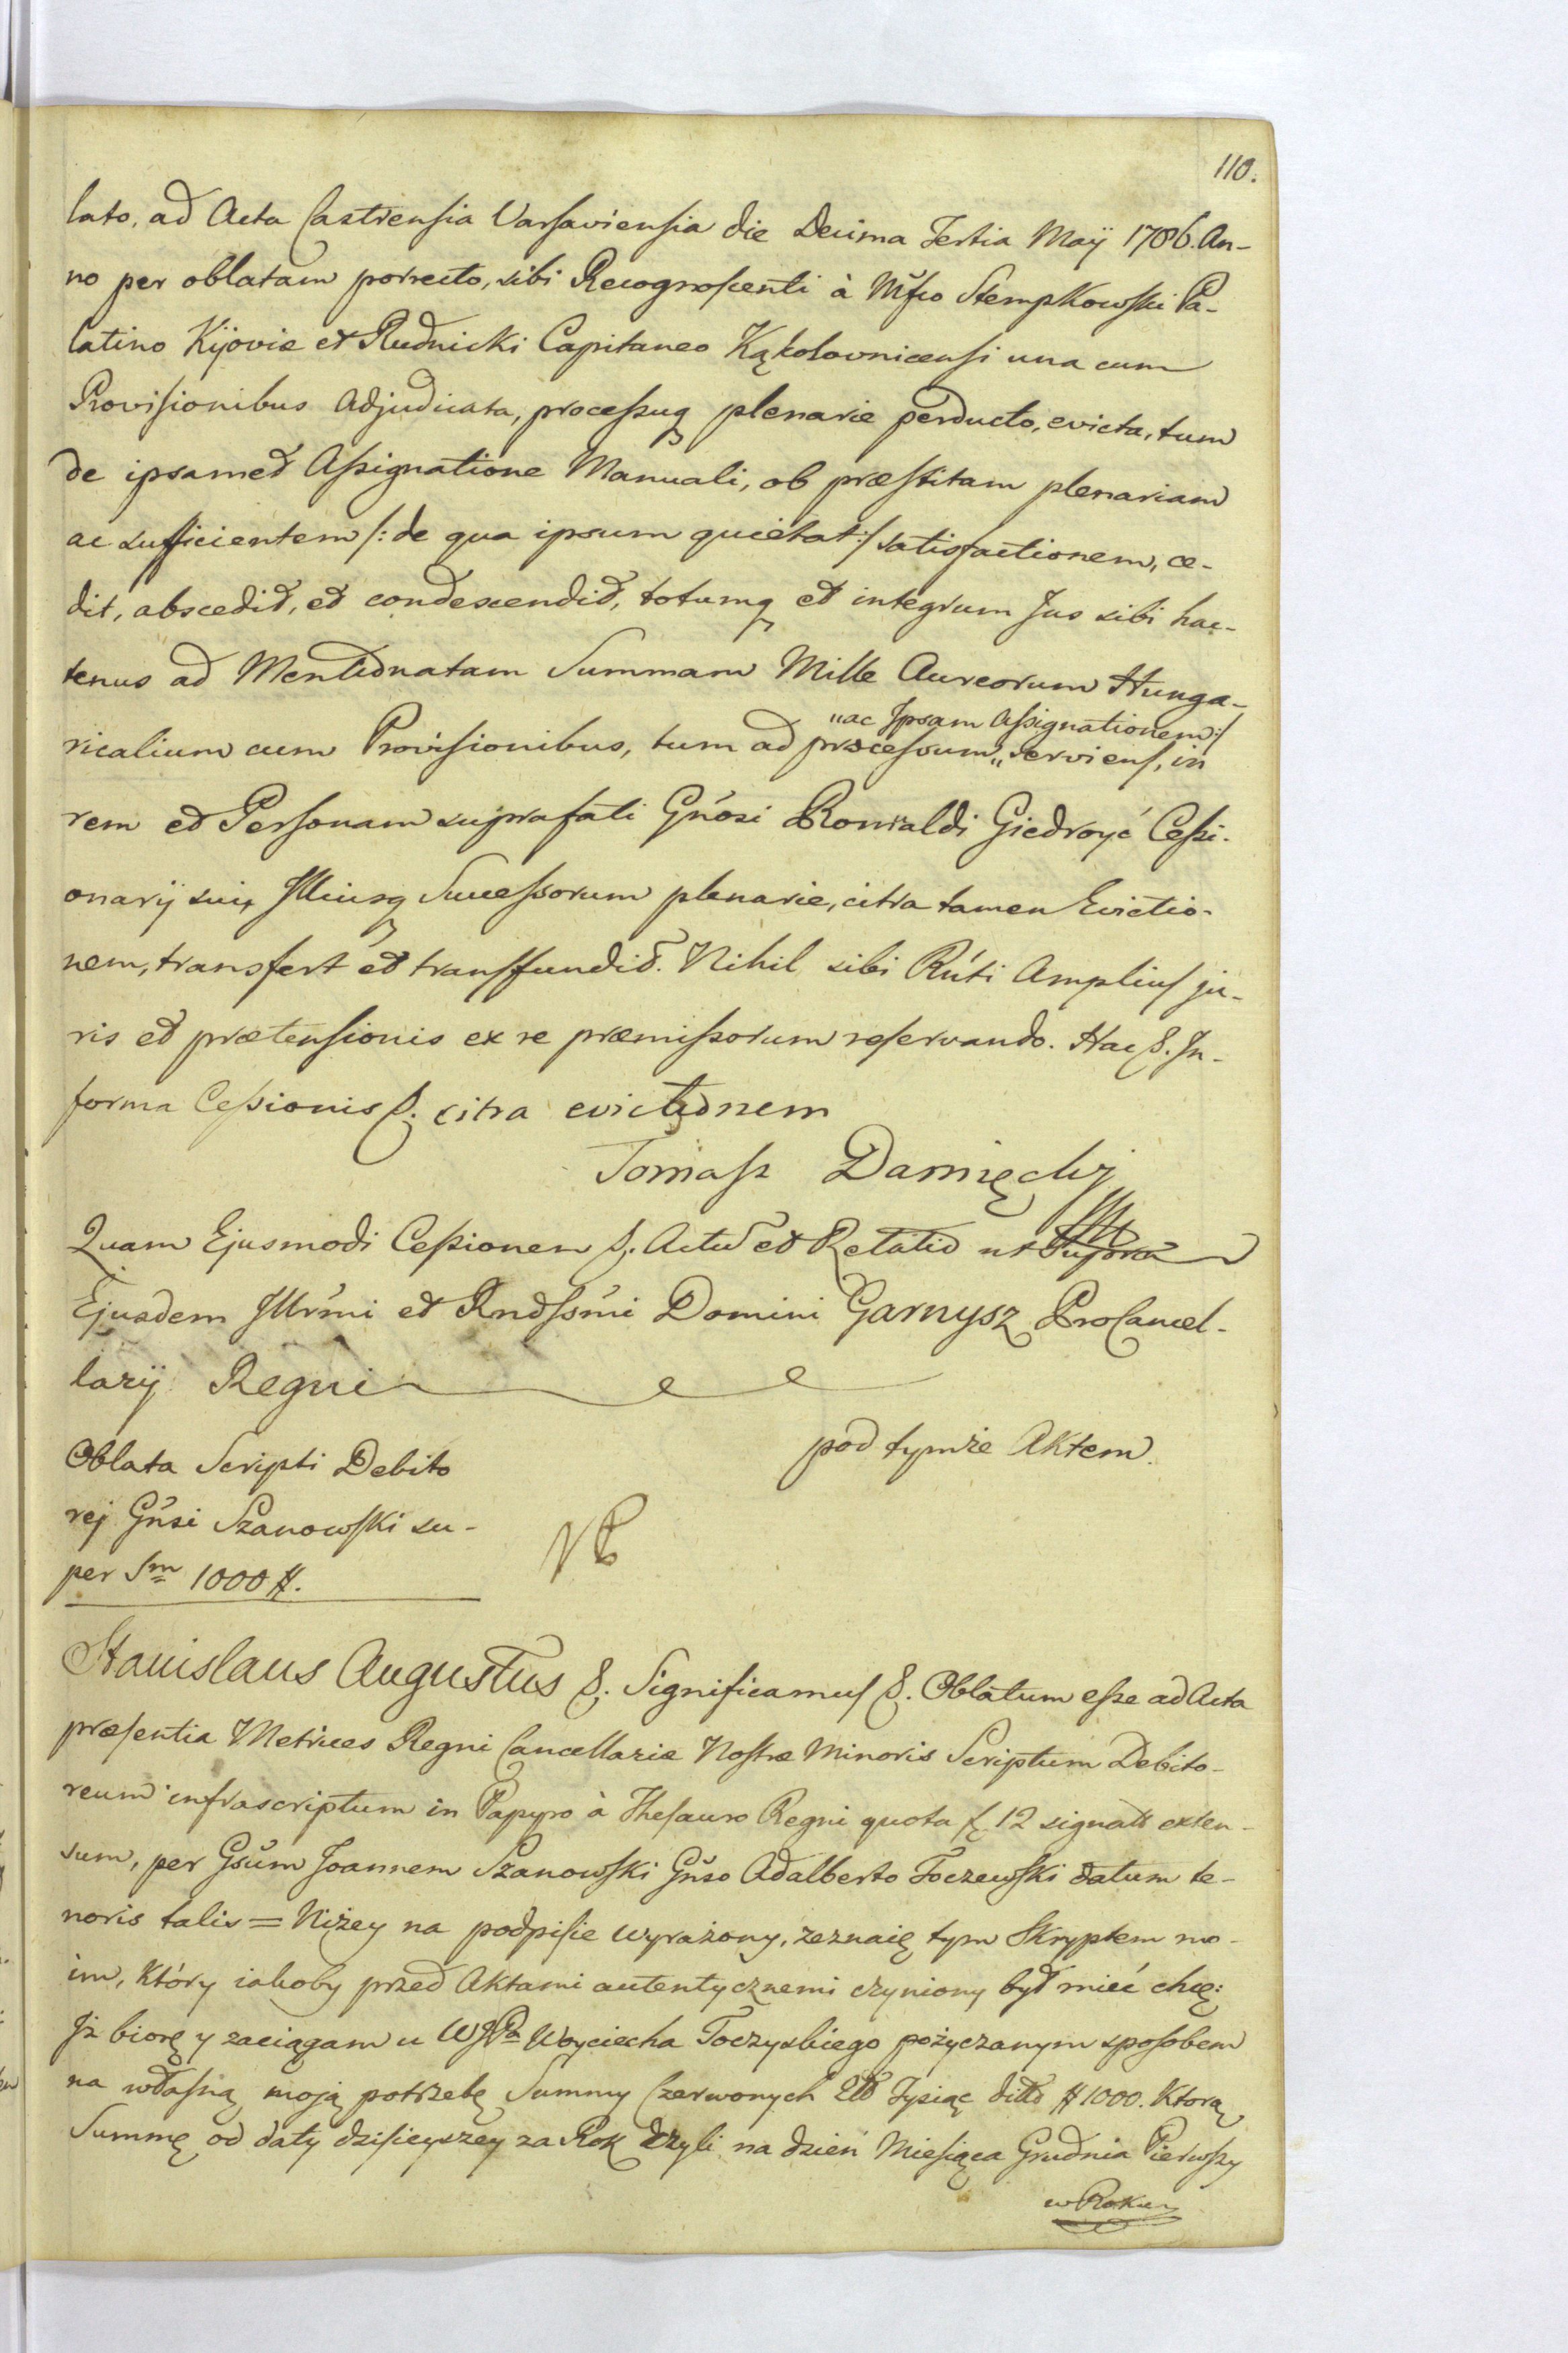 110.
lato, ad Acta Castrensia Varsaviensia die Decima Tertia Maÿ 1786. An-
no per oblatam porrecto, sibi Recognoscenti à Mfco Stempkowski Pa-
latino Kijoviæ et Rudnicki Capitaneo Kąkolovnicensi una cum
Provisionibus Adjudicata, processuq plenarie perducto, evicta, tum
de ipsamet Assignatione Manuali, ob præstitam plenariam
ac sufficientem /: de qua ipsum quietat :/ satisfactionem, ce-
dit, abscedit, et condescendit, totumq et integrum Jus sibi hac-
tenus ad Mentionatam Summam Mille Aureorum Hunga-
„ac Ipsam Assignationem :/
ricalium cum Provisionibus, tum ad processum „ serviens, in
rem et Personam suprafati Gnosi Romaldi Giedroyć Cessi-
onarij sui, Illiusq Successorum plenarie, citra tamen Evictio-
nem, transfert et transfundit. Nihil sibi Rnti Amplius ju-
ris et prætensionis ex re præmissorum reservando. Hac &. In-
forma Cessionis &. citra evictionem
Tomasz Damięcki
Quam Ejusmodi Cessionem &. Actu et Relatio ut Supra
Ejusdem Illrmi et Rndssmi Domini Garnysz ProCancel-
larij Regni
Oblata Scripti Debito
rej Gnsi Szanowski su-
per Sm 1000 #.
pod tymże Aktem.
Stanislaus Augustus &. Significamus &. Oblatum esse ad Acta
præsentia Metrices Regni Cancellariæ Nostræ Minoris Scriptum Debito-
reum infrascriptum in Papyro à Thesauro Regni quota f. 12 signata exten-
sum, per Gsum Joannem Szanowski Gnso Adalberto Toczewski datum te-
noris talis = Niżey na podpisie wyrażony, zeznaię tym Skryptem mo-
im, Który iakoby przed Aktami autentycznemi czyniony był mieć chcę:
Iż biorę y zaciągam u WJPa Woyciecha Toczyskiego pożyczanym sposobem
na własną moją potrzebę Summy Czerwonych Złł Tysiąc ditto # 1000. Ktorą
Summę od daty dzisieyszey za Rok czyli na dzień Miesiąca Grudnia Pierwszy
w Roku